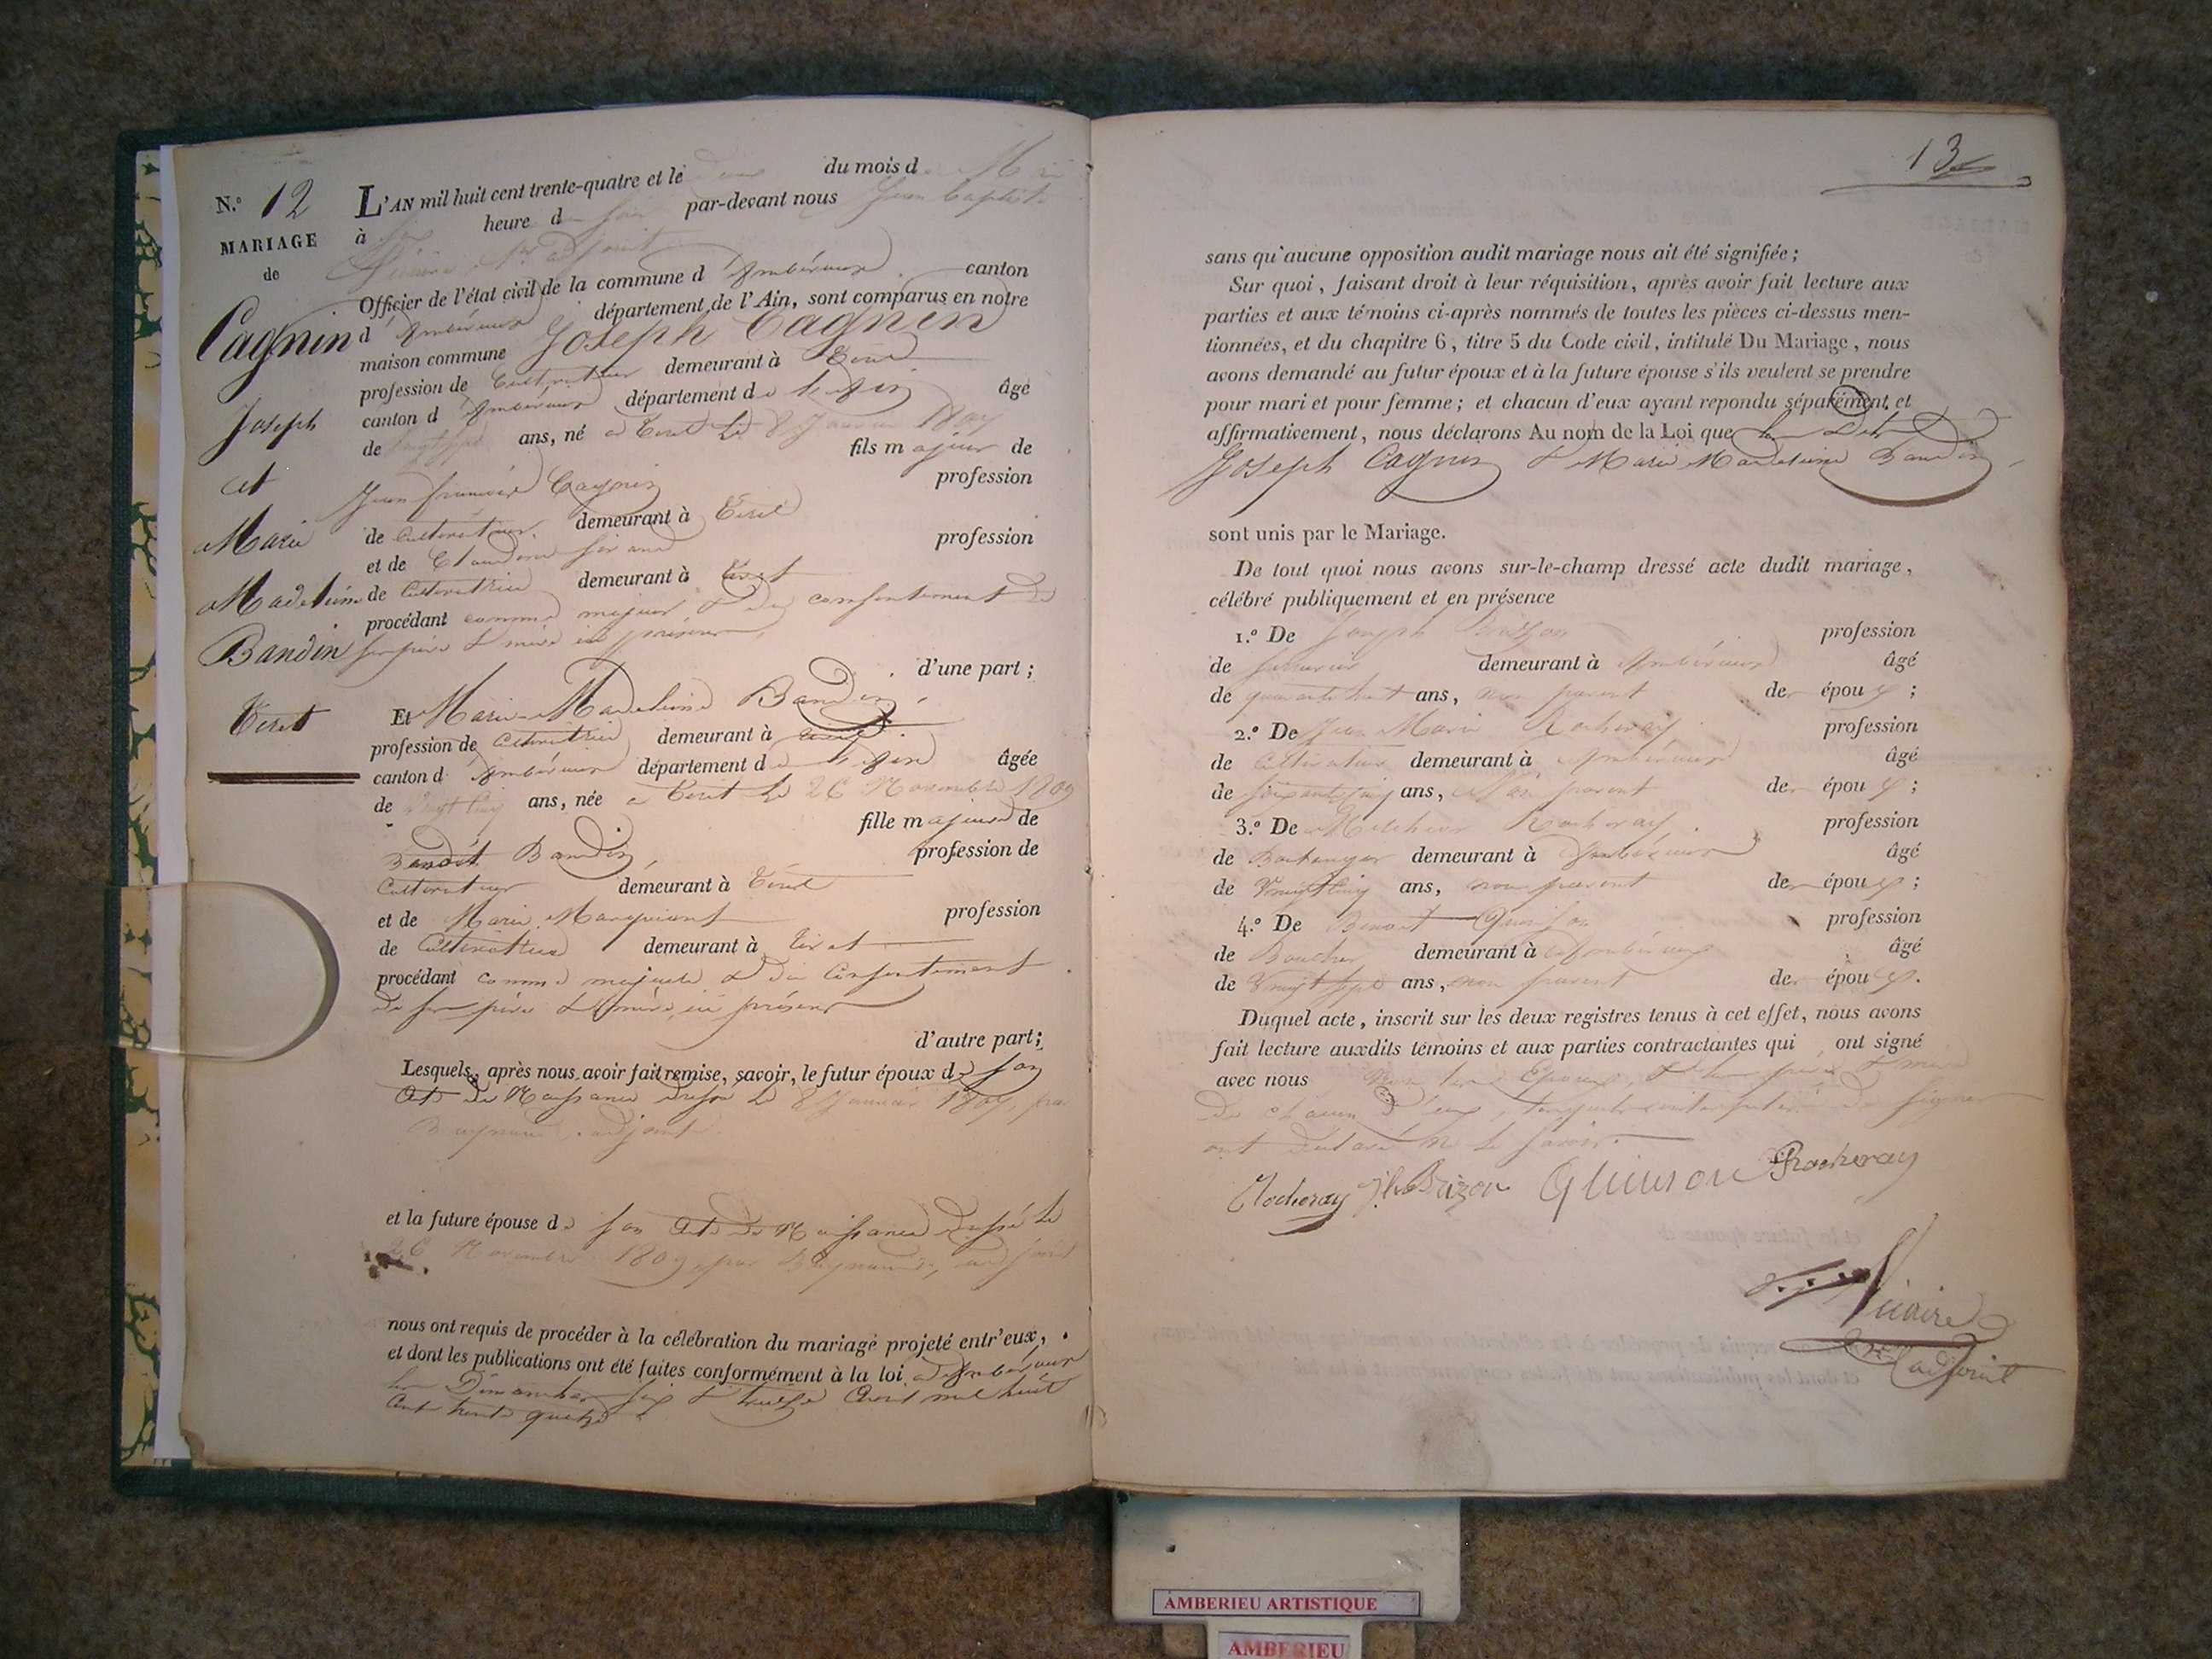 N.º 12
MARIAGE
de
Cagnin
Joseph
et
Marie
Madeleine
Bandin
Tiret
L'AN mil huit cent trente-quatre et le deux du mois de Mai
à heure du soir par-devant nous Jean Baptiste
Vicaire adjoint
Officier de l'état civil de la commune d'Ambérieux canton
d'Ambérieux département de l'Ain, sont comparus en notre
maison commune Joseph Cagnin
profession de Cultivateur demeurant à Tiret
canton d'Ambérieux département de l'Ain âgé
de vingt sept ans, né à Tiret le 8 Janvier 1807
fils majeur de
Jean françois Cagnin profession
de Cultivateur demeurant à Tiret
et de Claudine profession
de Cultivatrice demeurant à Tiret
procédant comme majeur & du consentement de
ses père & mère ici présens
d'une part ;
Et Marie-Madeleine Bandin
profession de Cultivatrice demeurant à Tiret
canton d'Ambérieux département de l'Ain âgée
de vingt cinq ans, née à Tiret le 26 Novembre 1809
fille majeure de
Benoît Bandin profession de
Cultivateur demeurant à Tiret
et de Marie profession
de Cultivatrice demeurant à Tiret
procédant comme majeure & du Consentement
de ses père & mère, ici présens
d'autre part ;
Lesquels, après nous avoir fait remise, savoir, le futur époux de son
Acte de Naissance dressé le 8 Janvier 1807, par
adjoint
et la future épouse de son Acte de Naissance dressé le
26 Novembre 1809, par adjoint
nous ont requis de procéder à la célébration du mariage projeté entr'eux,
et dont les publications ont été faites conformément à la loi à Ambérieux
les Dimanches six & treize Avril mil huit
Cent trente quatre
13
sans qu'aucune opposition audit mariage nous ait été signifiée ;
Sur quoi, faisant droit à leur réquisition, après avoir fait lecture aux
parties et aux témoins ci-après nommés de toutes les pièces ci-dessus men-
tionnées, et du chapitre 6, titre 5 du Code civil, intitulé Du Mariage, nous
avons demandé au futur époux et à la future épouse s'ils veulent se prendre
pour mari et pour femme ; et chacun d'eux ayant repondu séparément et
affirmativement, nous déclarons Au nom de la Loi que les dits
Joseph Cagnin & Marie Madeleine Bandin
sont unis par le Mariage.
De tout quoi nous avons sur-le-champ dressé acte dudit mariage,
célébré publiquement et en présence
1.º De Joseph Brizon profession
de serrurier demeurant à Ambérieux âgé
de quarante huit ans, non parent des époux ;
2.º De Jean Marie Rocheray profession
de Cultivateur demeurant à Ambérieux âgé
de soixante cinq ans, Non parent des époux ;
3.º De Melchior Rocheray profession
de Boulanger demeurant à Ambérieux âgé
de Vingt cinq ans, non parent des époux ;
4.º De Benoit Quinson profession
de Boucher demeurant à Ambérieux âgé
de Vingt sept ans, non parent des époux.
Duquel acte, inscrit sur les deux registres tenus à cet effet, nous avons
fait lecture auxdits témoins et aux parties contractantes qui ont signé
avec nous non les Epoux, & les père & mère
de chacun d'eux, lesquels interpellés de signer
ont déclaré ne le savoir.
Rocheray Jh Brizon Quinson Rocheray
Vicaire
adjoint
AMBERIEU ARTISTIQUE
AMBERIEU